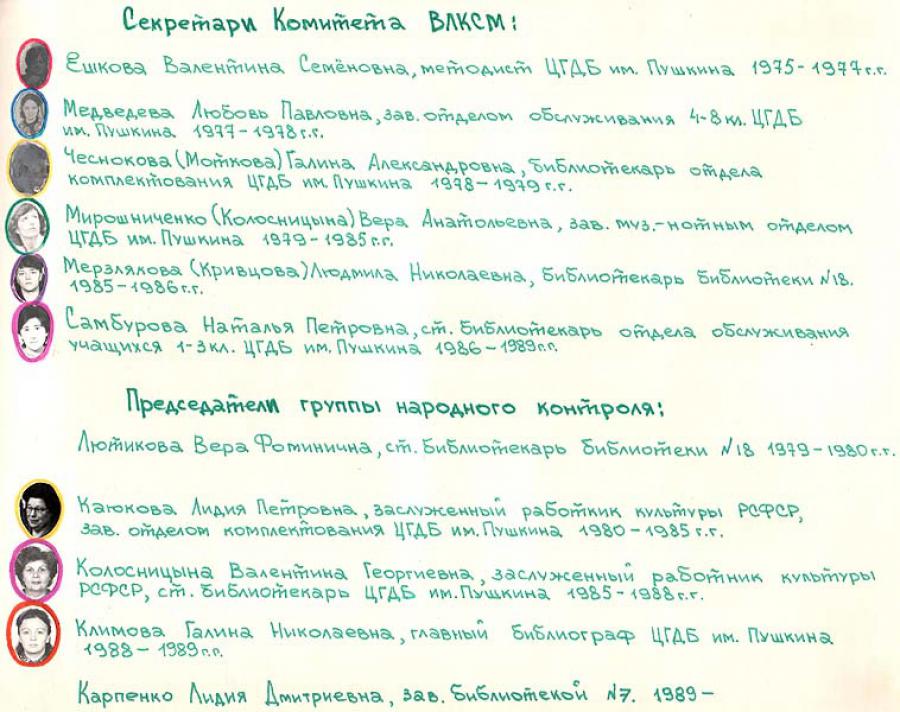 Секретари Комитета ВЛКСМ:
Ешкова Валентина Семёновна, методист ЦГДБ им. Пушкина 1975-1977 г.г.
Медведева Любовь Павловна, зав. отделом обслуживания 4-8 кл. ЦГДБ
им. Пушкина 1977-1978 г.г.
Чеснокова (Моткова) Галина Александровна, библиотекарь отдела
комплектования ЦГДБ им. Пушкина 1978-1979 г.г.
Мирошниченко (Колосницына) Вера Анатольевна, зав. муз.-нотным отделом
ЦГДБ им. Пушкина 1979-1985 г.г.
Мерзлякова (Кривцова) Людмила Николаевна, библиотекарь библиотеки №18.
1985-1986 г.г.
Самбурова Наталья Петровна, ст. библиотекарь отдела обслуживания
учащихся 1-3 кл. ЦГДБ им. Пушкина 1986-1989 г.г.
Председатели группы народного контроля:
Лютикова Вера Фотинична, ст. библиотекарь библиотеки №18 1979-1980 г.г.
Каюкова Лидия Петровна, заслуженный работкик культуры РСФСР,
зав. отделом комплектования ЦГДБ им. Пушкина 1980-1985 г.г.
Колосницына Валентина Георгиевна, заслуженный работник культуры
РСФСР, ст. библиотекарь ЦГДБ им. Пушкина 1985-1988 г.г.
Климова Галина Николаевна, главный библиограф ЦГДБ им. Пушкина
1988-1989 г.г.
Карпенко Лидия Дмитриевна, зав. библиотекой №7. 1989-